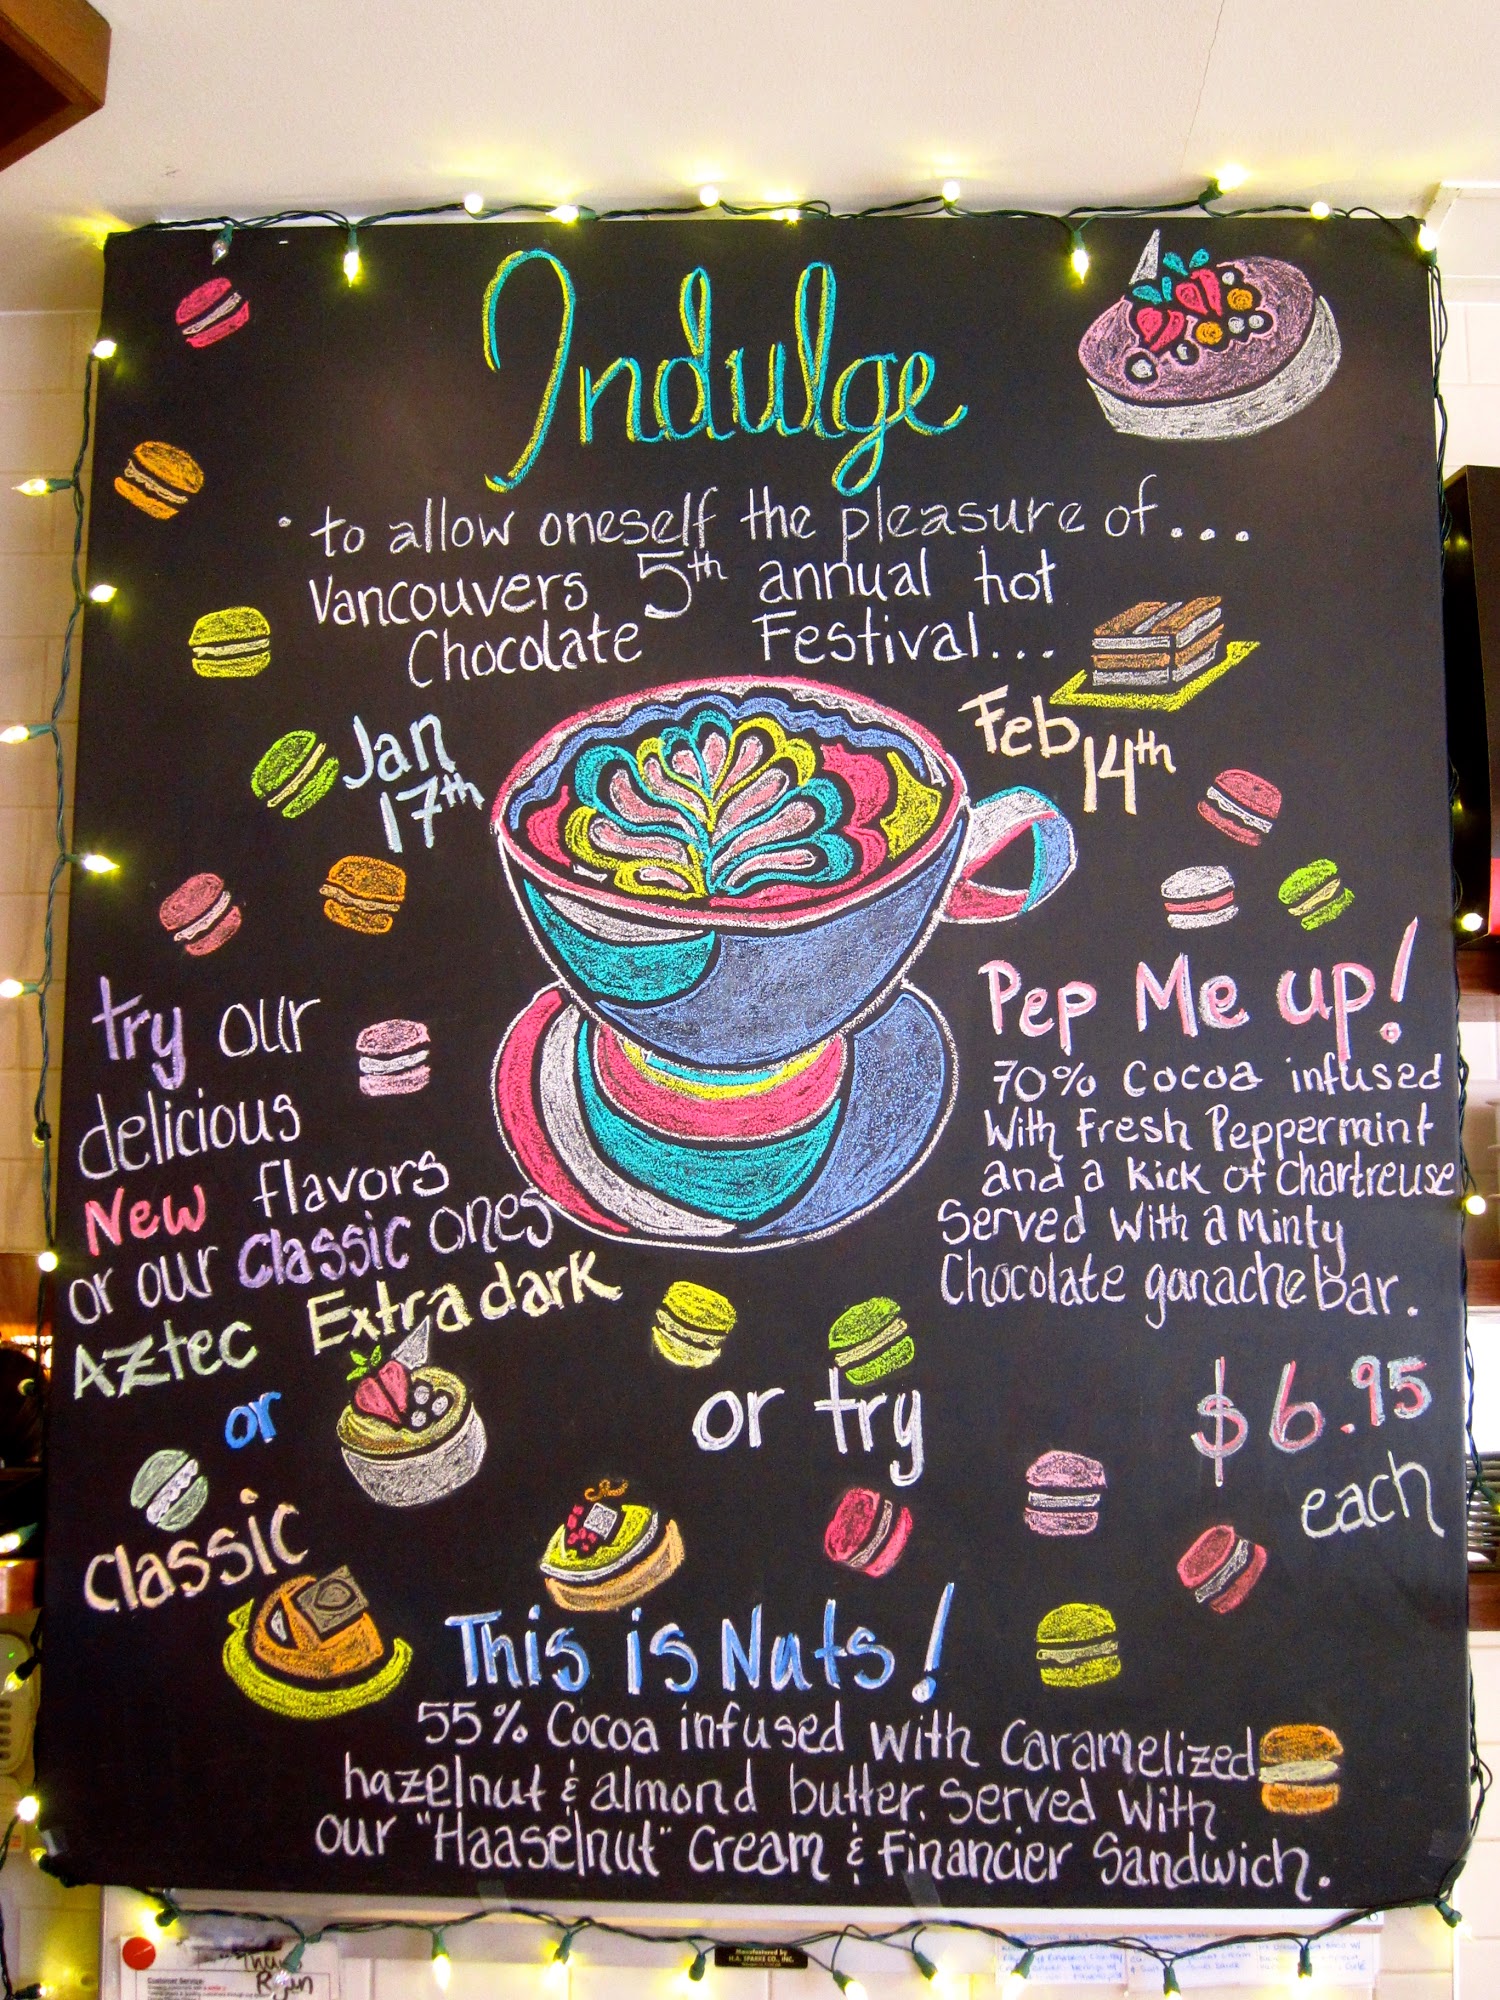 Indulge
· to allow oneself the pleasure of...
Vancouvers 5th annual hot
Chocolate Festival...
Jan
17th
Feb
14th
try our
delicious
New flavors
or our classic ones
Aztec Extra dark
or
Classic
Pep Me up!
70% Cocoa infused
With Fresh Peppermint
and a Kick of Chartreuse
Served with a Minty
Chocolate ganache bar.
$6.95
each
or try
This is Nuts!
55% Cocoa infused with Caramelized
hazelnut & almond butter. Served with
our "Haaselnut" Cream & Financier Sandwich.
Customer Service:
Ryan
Manufactured by